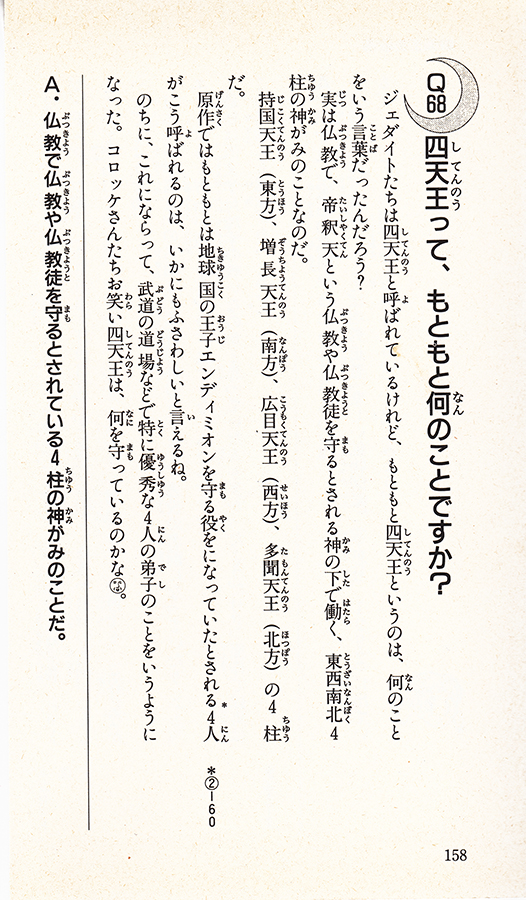 Q68
四天王って、もともと何のことですか？
ジェダイトたちは四天王と呼ばれているけれど、もともと四天王というのは、何のこと
をいう言葉だったんだろう？
実は仏教で、帝釈天という仏教や仏教徒を守るとされる神の下で働く、東西南北4
柱の神がみのことなのだ。
持国天王（東方）、増長天王（南方）、広目天王（西方）、多聞天王（北方）の4柱
だ。
原作ではもともとは地球国の王子エンディミオンを守る役をになっていたとされる4人*
がこう呼ばれるのは、いかにもふさわしいと言えるね。
のちに、これにならって、武道の道場などで特に優秀な4人の弟子のことをいうように
なった。コロッケさんたちお笑い四天王は、何を守っているのかな。
*②−60
A・仏教で仏教や仏教徒を守るとされている4柱の神がみのことだ。
158